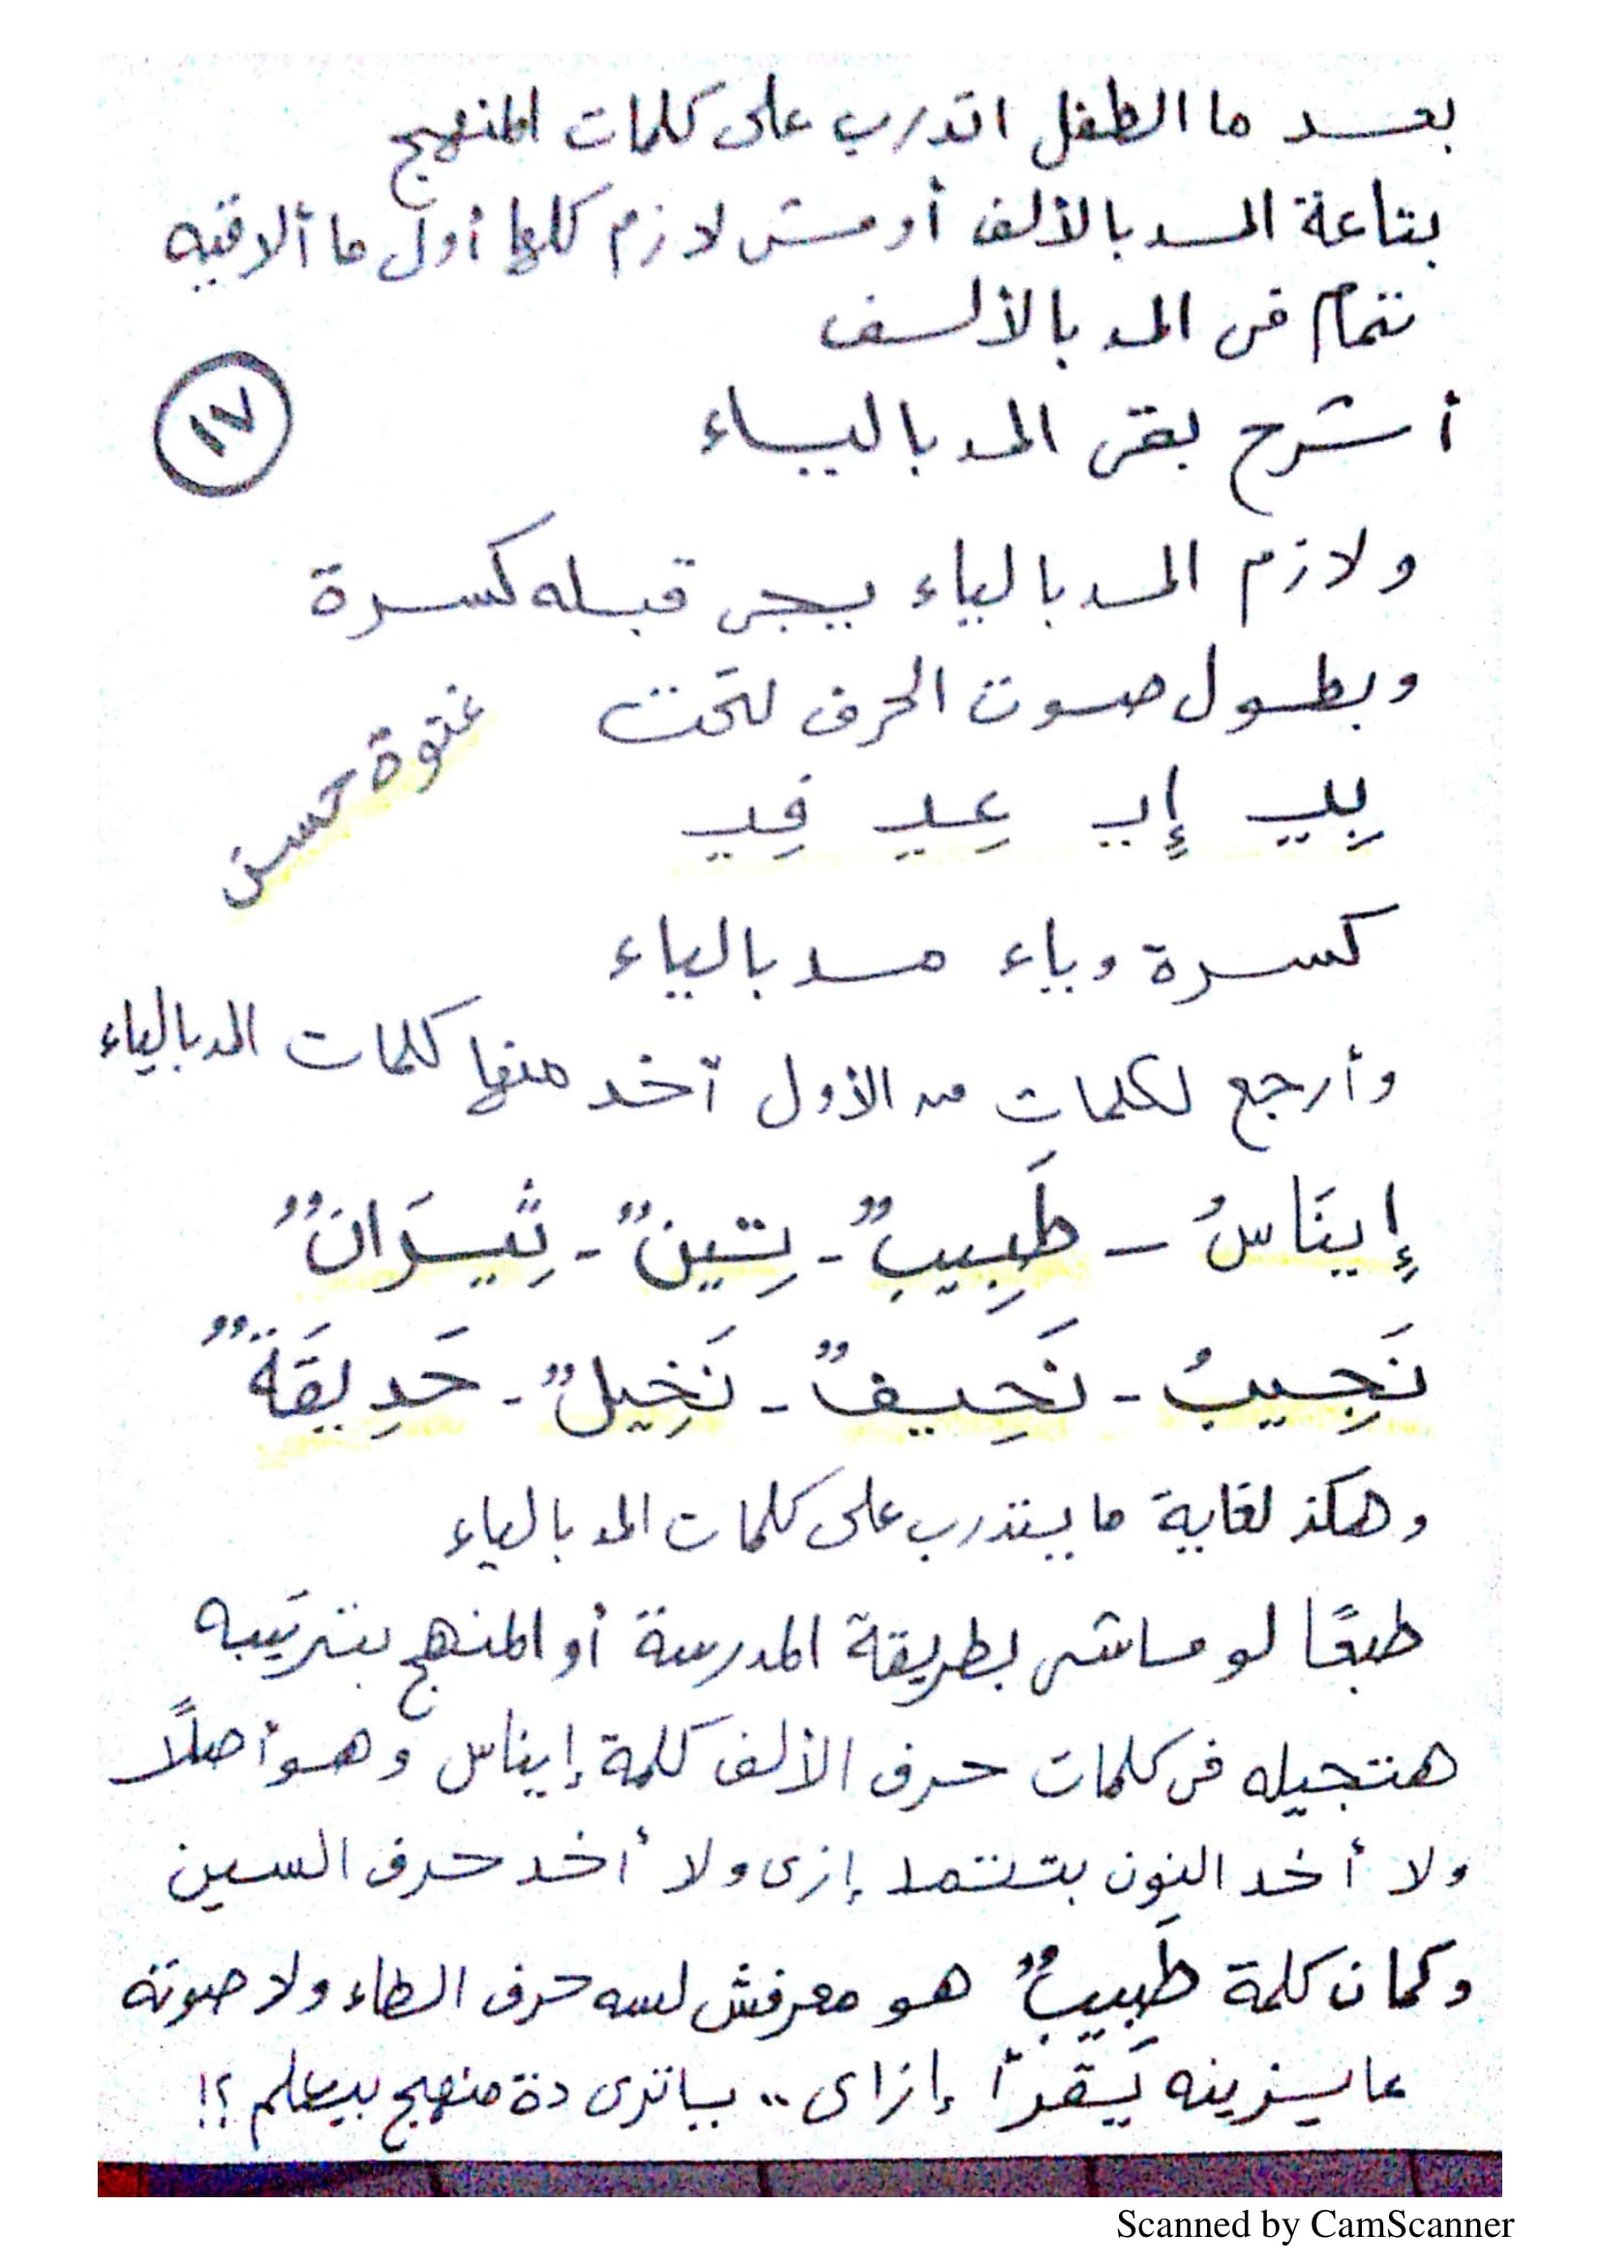 بعد ما الطفل اتدرب على كلمات المنهج
بتاعة المد بالألف أو مش لازم كلها أول ما ألاقيه
تمام فى المد بالألف
١٧
أشرح بقى المد بالياء
ولازم المد بالياء ييجى قبله كسرة
وبطول صوت الحرف لتحت
غنوة كسن
بِيـ إِيـ عِيـ فِيـ
كسرة وياء مد بالياء
وأرجع لكلمات من الأول آخد منها كلمات المد بالياء
إِينَاسُ - طَبِيبٌ - تِينٌ - ثِيرَانٌ
نَجِيبُ - نَحِيفٌ - نَخِيلٌ - حَدِيقَةٌ
وهكذ لغاية ما يبتدرب على كلمات المد بالياء
طبعًا لو ماشى بطريقة المدرسة أو المنهج بترتيبه
هتجيله فى كلمات حرف الألف كلمة إيناس وهو أصلًا
ولا أخد النون بتتمد إزى ولا أخد حرف السين
وكمان كلمة طَبِيبٌ هو معرفش لسه حرف الطاء ولا صوته
عايزينه يَقرأ إزاى .. ياترى دة منهج بيعلم ؟!
Scanned by CamScanner